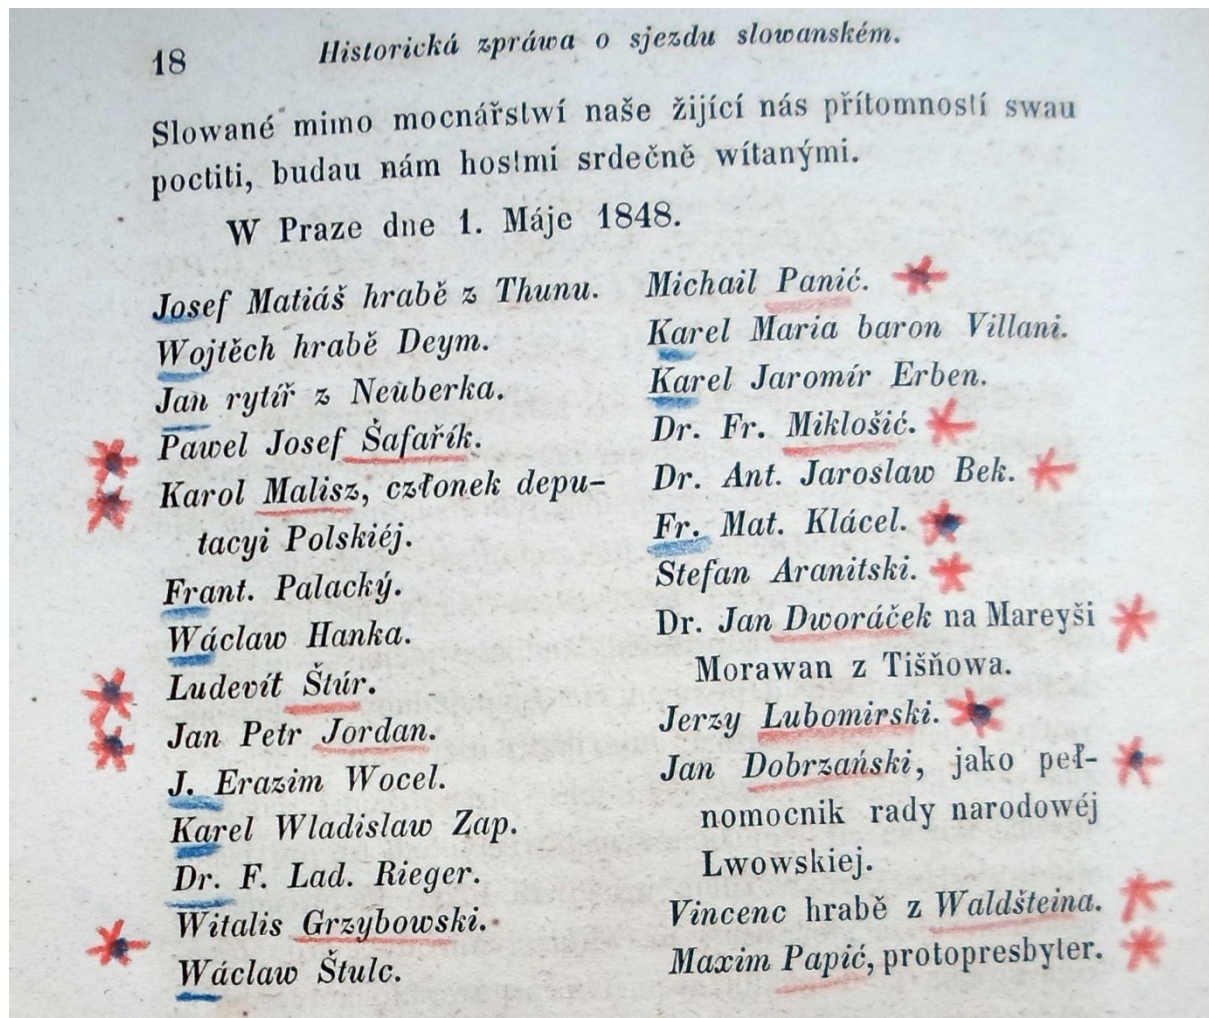 18
Historická zpráwa o sjezdu slowanském.
Slowané mimo mocnářstwí naše žijící nás přítomností swau
poctiti, budau nám hostmi srdečně wítanými.
W Praze dne 1. Máje 1848.
Josef Matiáš hrabě z Thunu.
Wojtěch hrabě Deym.
Jan rytíř z Neuberka.
Pawel Josef Šafařík.
Karol Malisz, członek depu-
tacyi Polskiéj.
Frant. Palacký.
Wáclaw Hanka.
Ludevít Štúr.
Jan Petr Jordan.
J. Erazim Wocel.
Karel Wladislaw Zap.
Dr. F. Lad. Rieger.
Witalis Grzybowski.
Wáclaw Štulc.
Michail Panić.
Karel Maria baron Villani.
Karel Jaromír Erben.
Dr. Fr. Miklošić.
Dr. Ant. Jaroslaw Bek.
Fr. Mat. Klácel.
Stefan Aranitski.
Dr. Jan Dworáček na Mareyši
Morawan z Tišňowa.
Jerzy Lubomirski.
Jan Dobrzański, jako peł-
nomocnik rady narodowéj
Lwowskiej.
Vincenc hrabě z Waldšteina.
Maxim Papić, protopresbyter.